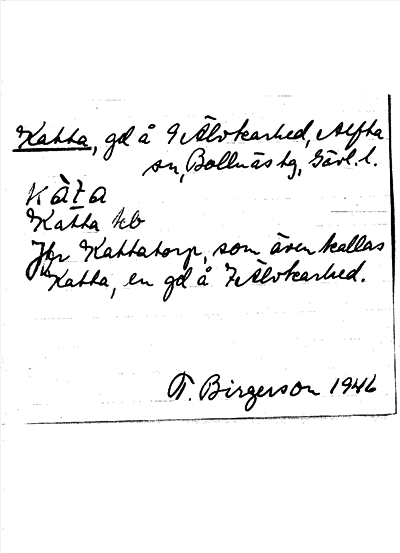 Katta, gd å 9 Älvkarhed, Alfta
sn, Bollnäs tg, Gävl. l.
kàta
Katta kb
Jfr Kattatorp, som även kallas
Katta, en gd å 7 Älvkarhed.
T. Birgerson 1946